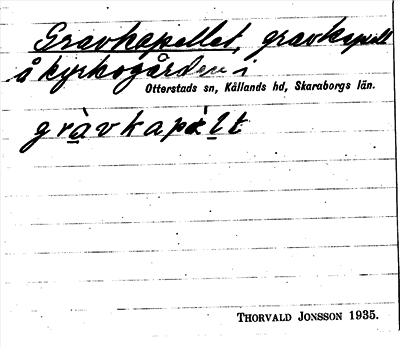 Gravkapellet, gravkapell
å kyrkogården i
Otterstads sn, Kållands hd, Skaraborgs län.
gràvkapält
THORVALD JONSSON 1935.